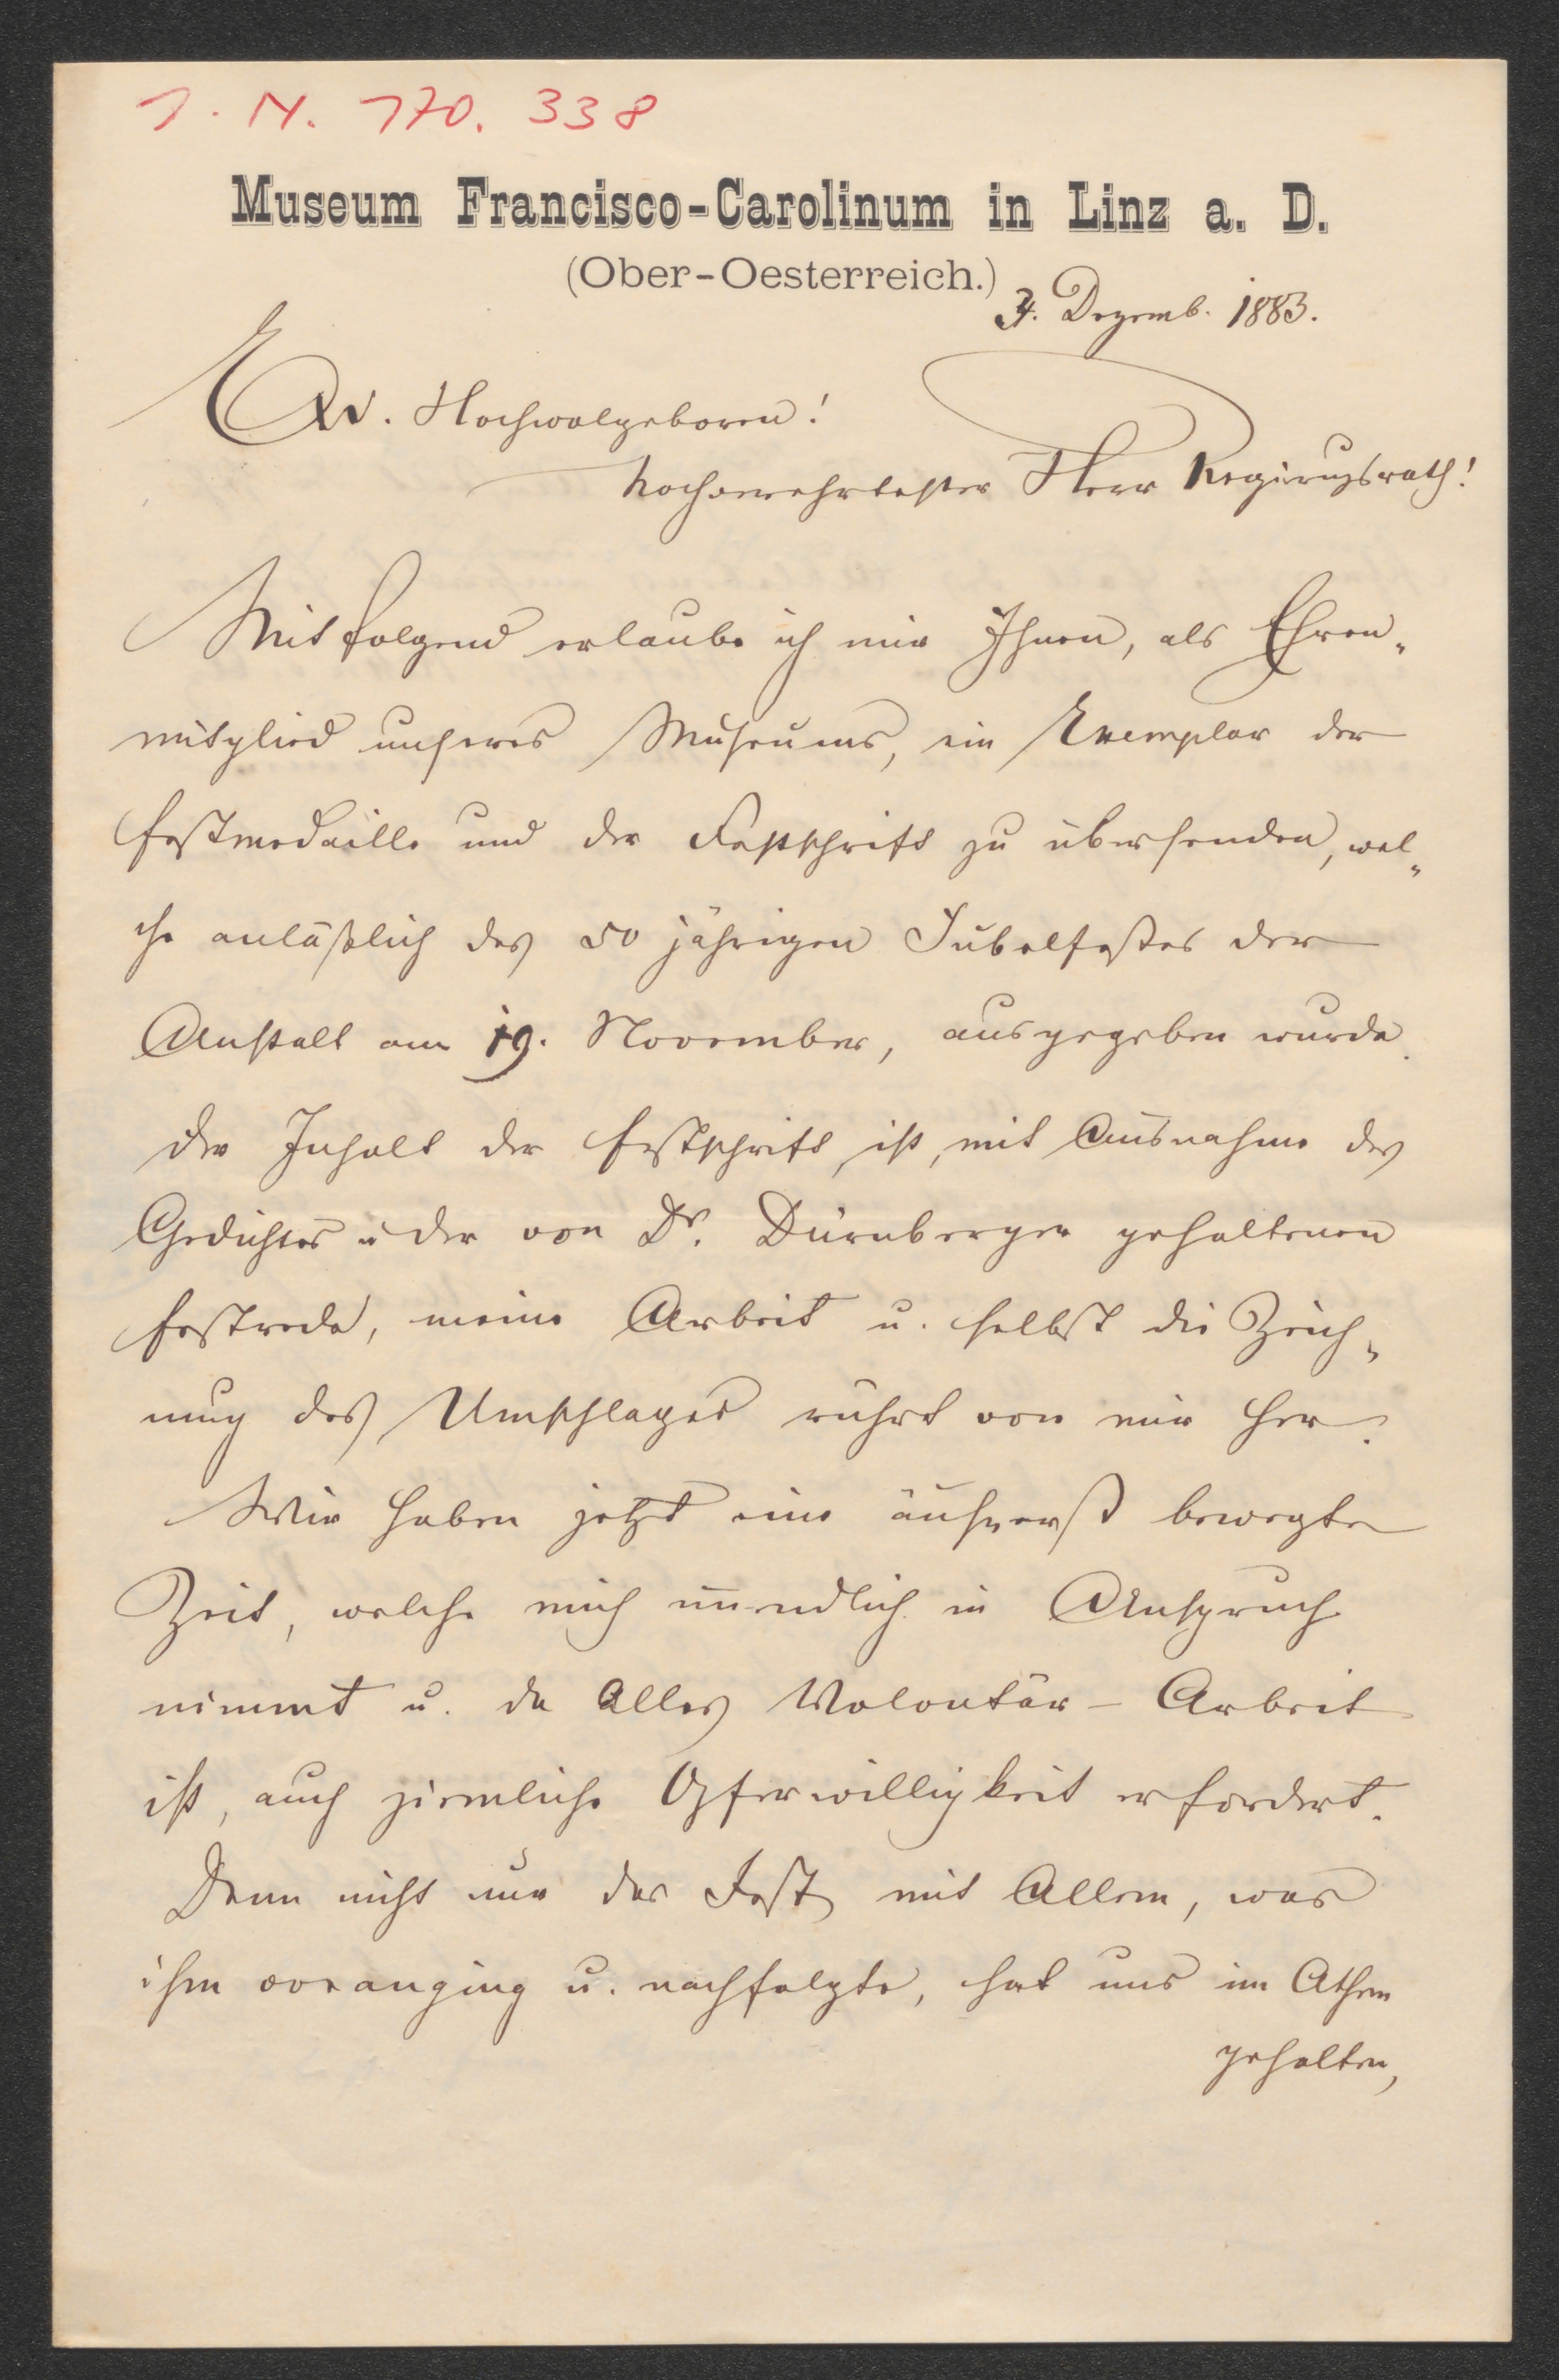 J. N. 170.338
Museum Francisco-Carolinum in Linz a. D.
(Ober-Oesterreich.)
4. Dezemb. 1883.
Ew. Hochwolgeboren!
Hochverehrtester Herr Regirungsrath!
Mitfolgend erlaube ich mir Ihnen, als Ehren-
mitglied unseres Museums, ein Exemplar der
Festmedaille und der Festschrift zu übersenden, wel-
che anläßlich des 50 jährigen Jubelfestes der
Anstalt am 19. November, ausgegeben wurde.
Der Inhalt der Festschrift ist, mit Ausnahme des
Gedichtes u der von Dr. Dürnberger gehaltenen
Festrede, meine Arbeit u. selbst die Zeich-
nung des Umschlages rührt von mir her.
Wir haben jetzt eine äußerst bewegte
Zeit, welche mich unendlich in Anspruch
nimmt u. da Alles Volontär-Arbeit
ist, auch ziemliche Opferwilligkeit erfordert.
Denn nicht nur das Fest mit Allem, was
ihm voranging u. nachfolgte, hat uns im Athem
gehalten,